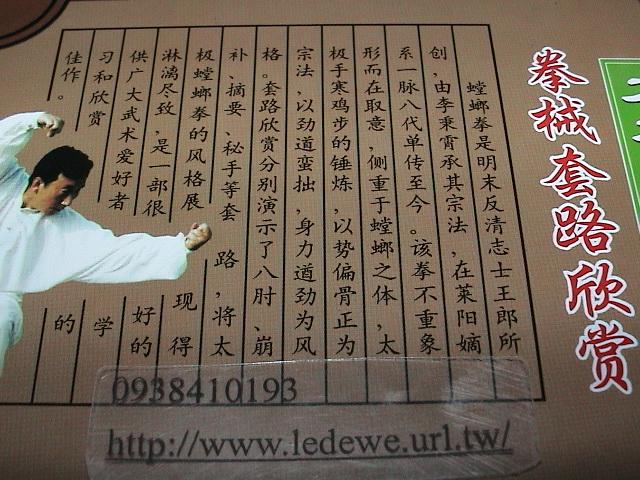 拳械套路欣赏
螳螂拳是明末反清志士王郎所
创,由李秉宵承其宗法,在莱阳嫡
系一脉八代单传至今。该拳不重象
形而在取意,侧重于螳螂之体,太
极手寒鸡步的锤炼,以势偏骨正为
宗法,以劲道蛮拙,身力道劲为风
格。套路欣赏分别演示了八肘、崩
补、摘要、秘手等套路,将太
极螳螂拳的风格展现得
淋漓尽致,是一部很好的
供广大武术爱好者学
习和欣赏的
佳作。
0938410193
http://www.ledewe.url.tw/